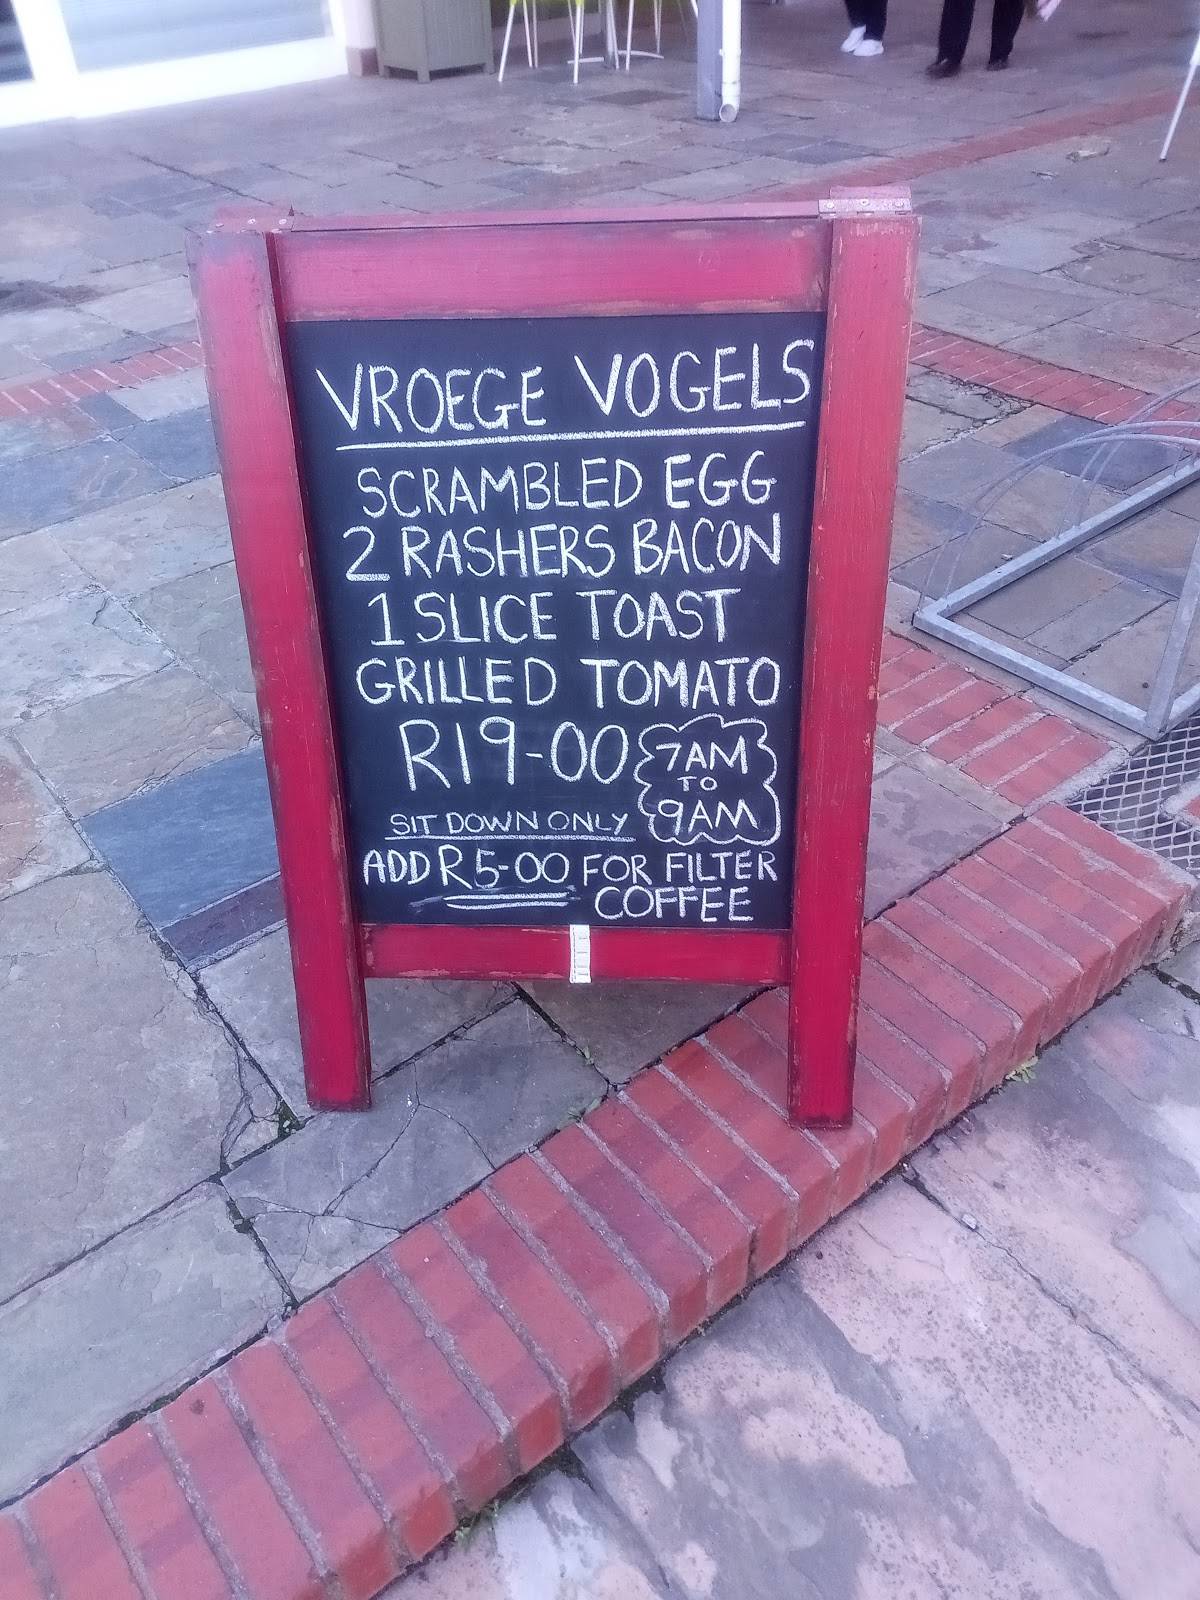 VROEGE VOGELS
SCRAMBLED EGG
2 RASHERS BACON
1 SLICE TOAST
GRILLED TOMATO
R19-00
7AM
TO
9AM
SIT DOWN ONLY
ADD R5-00 FOR FILTER
COFFEE